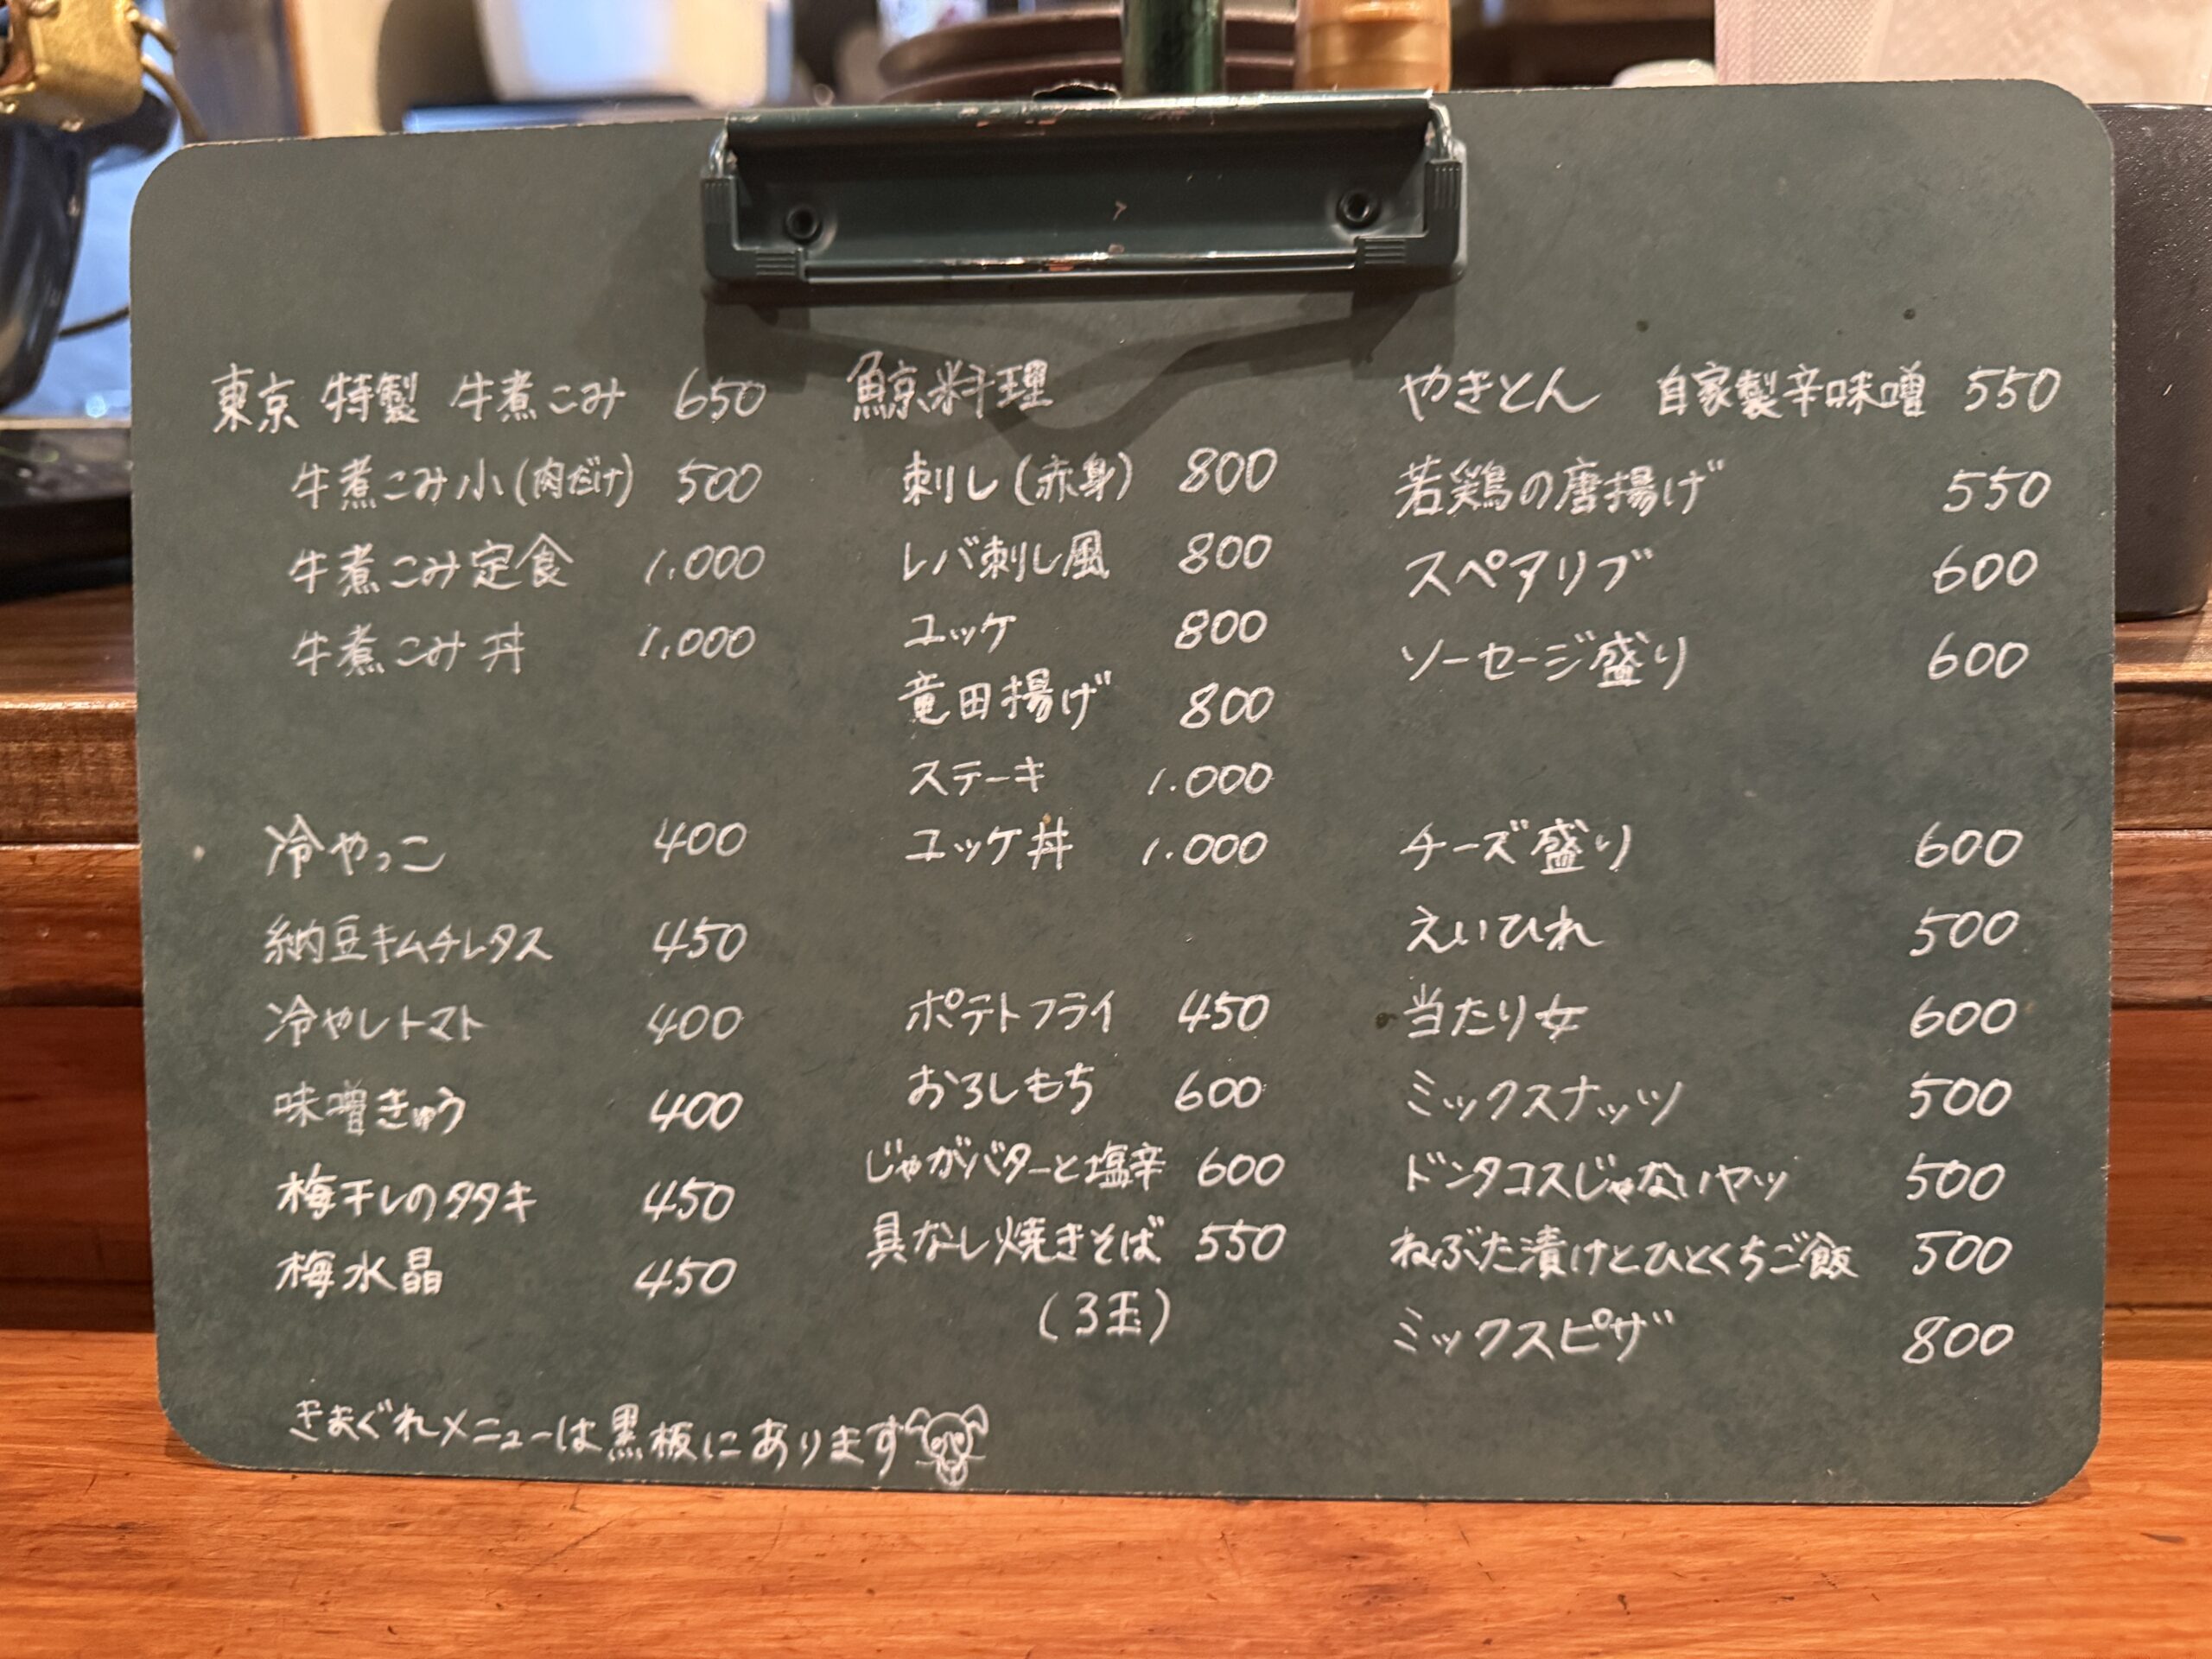 東京 特製 牛煮こみ 650
牛煮こみ小(肉だけ) 500
牛煮こみ定食 1.000
牛煮こみ丼 1.000
冷やっこ 400
納豆キムチレタス 450
冷やしトマト 400
味噌きゅう 400
梅干しのタタキ 450
梅水晶 450
鯨料理
刺し(赤身) 800
レバ刺し風 800
ユッケ 800
竜田揚げ 800
ステーキ 1.000
ユッケ丼 1.000
ポテトフライ 450
おろしもち 600
じゃがバターと塩辛 600
具なし焼きそば 550
(3玉)
やきとん 自家製辛味噌 550
若鶏の唐揚げ 550
スペアリブ 600
ソーセージ盛り 600
チーズ盛り 600
えいひれ 500
当たり女 600
ミックスナッツ 500
ドンタコスじゃないヤツ 500
ねぶた漬けとひとくちご飯 500
ミックスピザ 800
きまぐれメニューは黒板にあります